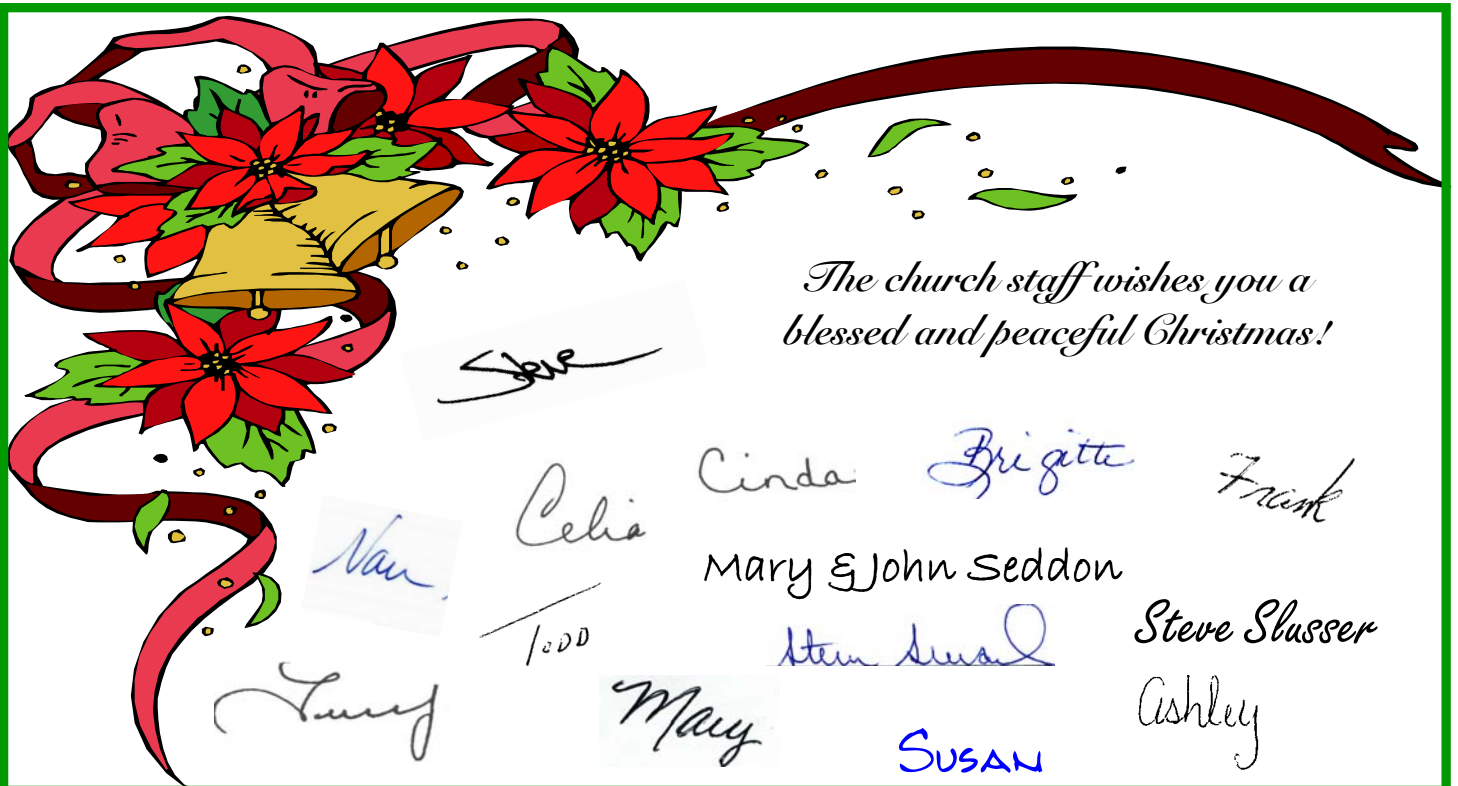 The church staff wishes you a
blessed and peaceful Christmas!
Steve
Cinda
Brigitte
Frank
Celia
Nan
Mary & John Seddon
Todd
Steve Slusser
Mary
Ashley
Susan